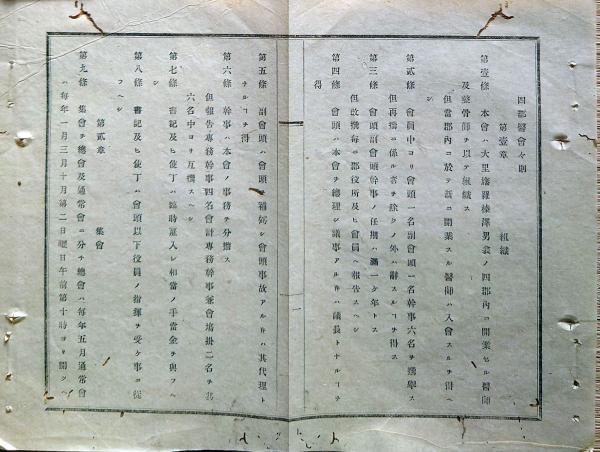 四郡醫會々則
第壹章　組織
第壹條　本會ハ大里旛羅榛澤男衾ノ四郡內ニ開業セル醫師
及整骨師ヲ以テ組織ス
但當郡內ニ於テ新ニ開業スル醫師ハ入會スルヲ得ヘ
シ
第貳條　會員中ヨリ會頭一名副會頭一名幹事六名ヲ撰擧ス
但再撰ニ係ル者ヲ除クノ外ハ辭スルヿヲ得ス
第三條　會頭副會頭幹事ノ任期ハ滿一ケ年トス
但改撰每ニ郡役所及ヒ會員ヘ報告スヘシ
第四條　會頭ハ本會ヲ總理シ議事アルキハ議長トナルヿヲ
得
一
第五條　副會頭ハ會頭ヲ補佐シ會頭事故アルキハ其代理ト
ナルヿヲ得
第六條　幹事ハ本會ノ事務ヲ分擔ス
但報告專務幹事四名會計專務幹事兼會塲掛二名ヲ其
六名中ヨリ互撰スヘシ
第七條　書記及ヒ使丁ハ臨時雇入レ相當ノ手當金ヲ與フヘ
シ
第八條　書記及ヒ使丁ハ會頭以下役員ノ指揮ヲ受ケ事ニ從
フヘシ
第貳章　集會
第九條　集會ヲ總會及通常會ニ分チ總會ハ每年五月通常會
ハ每年一月三月十月第二日曜日午前第十時ヨリ開クヘ